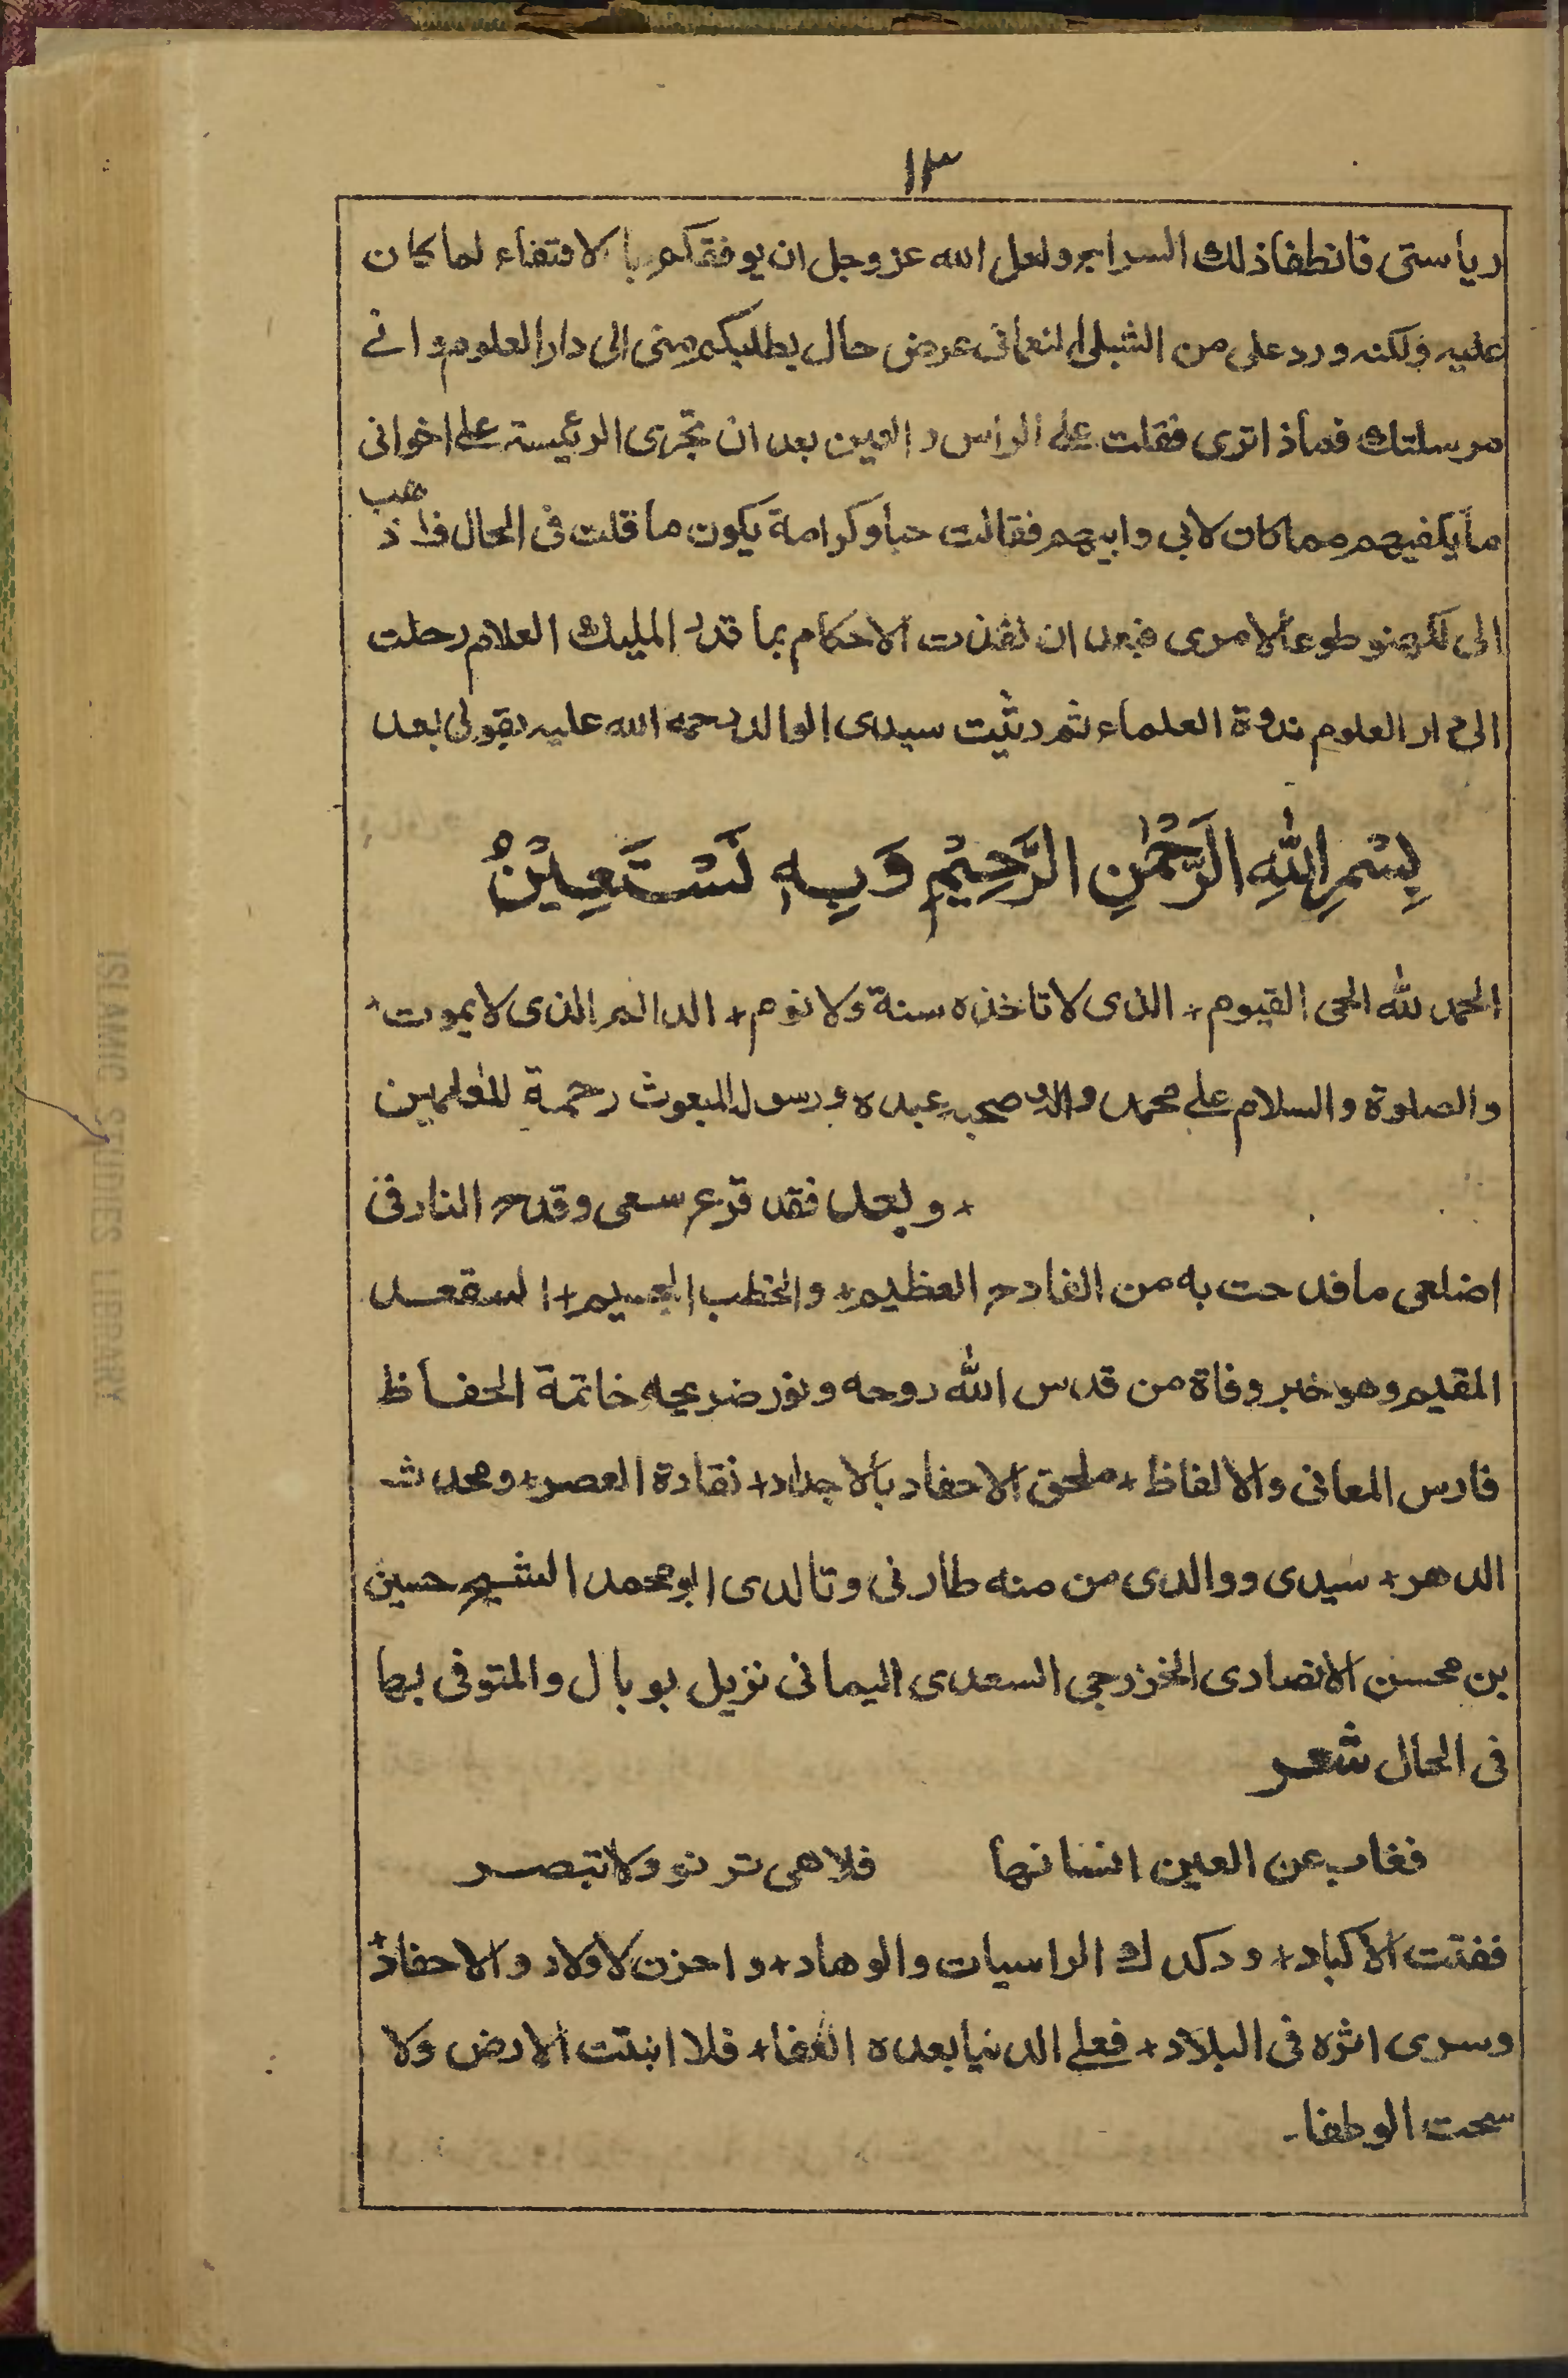 ١٣
رياستى فانطفاذلك السراج ولعل الله عز وجل ان يوفقكم بالاقتفاء لما كان
عليه ولكنه ورد على من الشبلى النعمانى عرض حال يطلبكم منى الى دار العلوم وانى
مرسلتك فماذا ترى فقلت على الراس والعين بعد ان تجرى الرئيسة على اخوانى
ما يكفيهم مما كان لابى وابيهم فقالت حبا وكرامة يكون ما قلت فى الحال فاذهب
الى لكهنو طوعا لامرى فبعد ان نفذت الاحكام بما قدر المليك العلام رحلت
الى دار العلوم ندوة العلماء ثم رثيت سيدى الوالد رحمه الله عليه بقولى بعد
بِسْمِ اللهِ الرَّحْمٰنِ الرَّحِيْمِ وَبِهٖ نَسْتَعِيْنُ
الحمد لله الحى القيوم + الذى لا تاخذه سنة ولا نوم + الدائم الذى لا يموت +
والصلوة والسلام على محمد واله وصحبه عبده ورسوله المبعوث رحمة للعلمين
+ وبعد فقد قرع سمعى وقدح النار فى
اضلعى ما فدحت به من الفادح العظيم + والخطب الجسيم + المقعد
المقيم وهو خبر وفاة من قدس الله روحه ونور ضريحه خاتمة الحفاظ
فارس المعانى والالفاظ + ملحق الاحفاد بالاجداد + نقادة العصر + ومحدث
الدهر + سيدى ووالدى من منه طارفى وتالدى ابو محمد الشيخ حسين
بن محسن الانصارى الخزرجى السعدى اليمانى نزيل بوبال والمتوفى بها
فى الحال شعر
فغاب عن العين انسانها فلا هى ترنو ولا تبصر
ففتت الاكباد + ودكدك الراسيات والوهاد + واحزن الاولاد والاحفاد +
وسرى اثره فى البلاد + فعلى الدنيا بعده العفا + فلا انبتت الارض ولا
سحت الوطفا ـ
ISLAMIC STUDIES LIBRARY